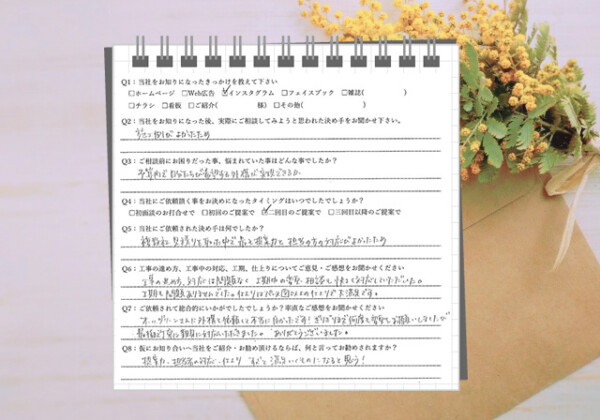 Q1：当社をお知りになったきっかけを教えて下さい
□ホームページ □Web広告 ☑インスタグラム □フェイスブック □雑誌（ ）
□チラシ □看板 □ご紹介（ 様）□その他（ ）
Q2：当社をお知りになった後、実際にご相談してみようと思われた決め手をお聞かせ下さい。
施工例がよかったため
Q3：ご相談前にお困りだった事、悩まれていた事はどんな事でしたか？
予算内で自分たちが希望する外構が実現できるか
Q4：当社にご依頼頂く事をお決めになったタイミングはいつでしたでしょうか？
□初面談のお打合せで □初回のご提案で ☑二回目のご提案で □三回目以降のご提案で
Q5：当社にご依頼された決め手は何でしたか？
複数社見積りを取った中で最も提案力と担当の方の対応がよかったため
Q6：工事の進め方、工事中の対応、工期、仕上りについてご意見・ご感想をお聞かせください
工事の進め方、対応は問題なく 工期中の変更、相談も快く対応していただいた。
工期も問題ありませんでした。仕上りは 図以上の仕上りで大満足です。
Q7：ご依頼されて総合的にいかがでしたでしょうか？率直なご感想をお聞かせください
さんに外構を依頼して本当に良かったです！ぎりぎりまで何度も変更をお願いしましたが
最後まで対応いただきました。ありがとうございました。
Q8：仮にお知り合いへ当社をご紹介・お勧め頂けるならば、何と言ってお勧めされますか？
提案力、担当者の対応、仕上り すべて満足いくものになると思う！